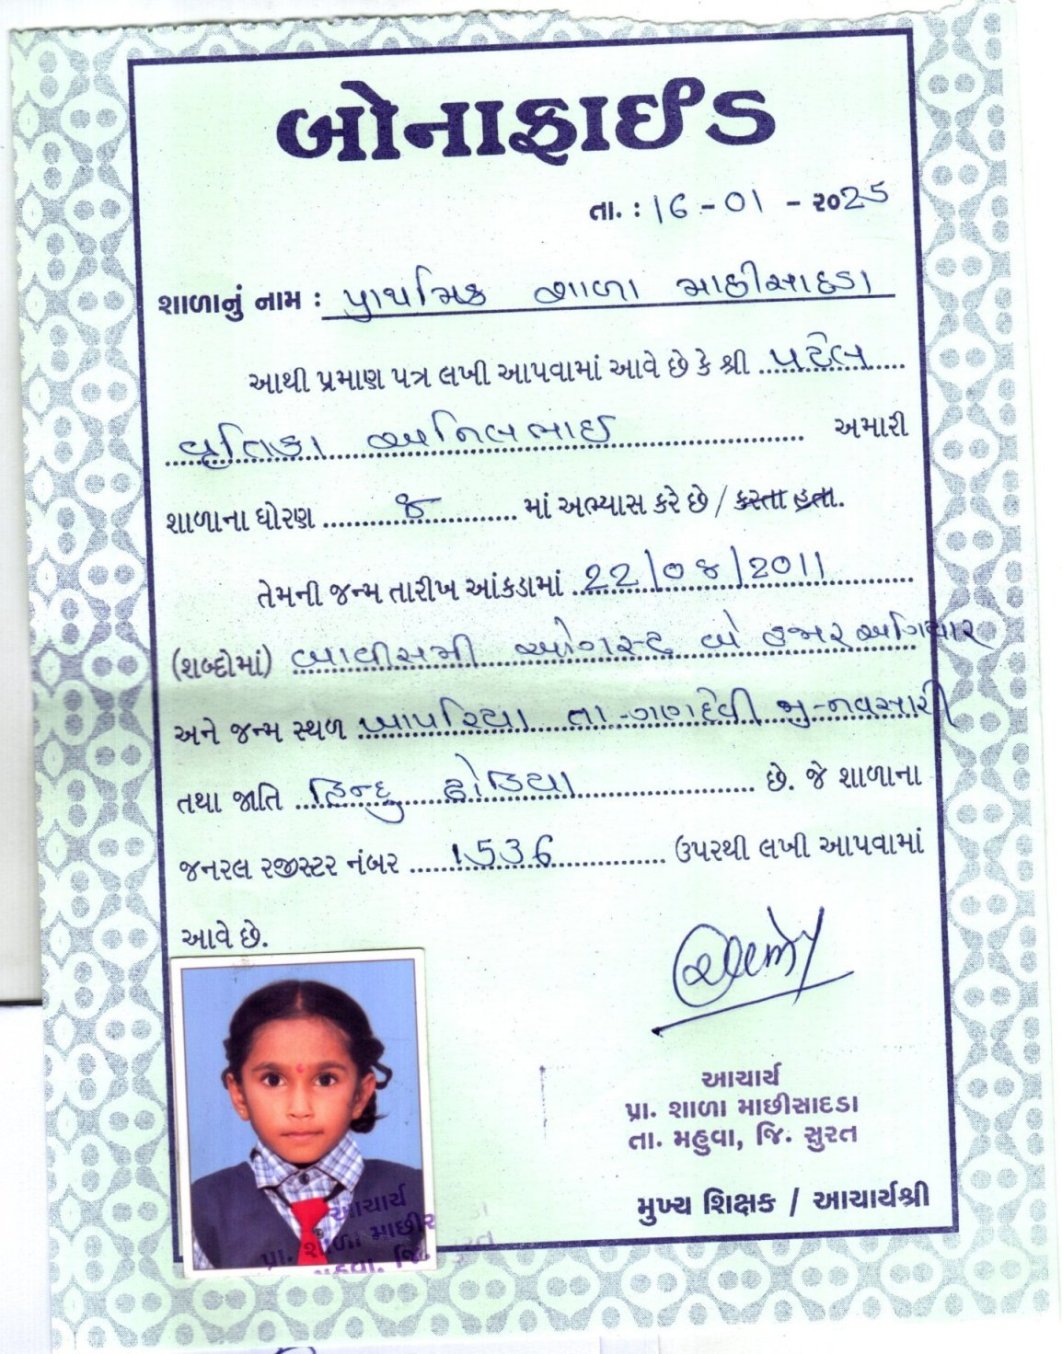 બોનાફાઈડ
તા. : 16 - 01 - ૨૦25
શાળાનું નામ : પ્રાથમિક શાળા માછીસાદડા
આથી પ્રમાણ પત્ર લખી આપવામાં આવે છે કે શ્રી પટેલ
વૃતિકા અનિલભાઈ અમારી
શાળાના ધોરણ ૪ માં અભ્યાસ કરે છે / કરતા હતા.
તેમની જન્મ તારીખ આંકડામાં 22/08/2011
(શબ્દોમાં) બાવીસમી ઓગસ્ટ બે હજાર અગિયાર
અને જન્મ સ્થળ ખાપરિયા તા-ગણદેવી જી-નવસારી
તથા જાતિ હિન્દુ ઢોડિયા છે. જે શાળાના
જનરલ રજીસ્ટર નંબર 1536 ઉપરથી લખી આપવામાં
આવે છે.
આચાર્ય
પ્રા. શાળા માછીસાદડા
તા. મહુવા, જિ. સુરત
મુખ્ય શિક્ષક / આચાર્યશ્રી
આચાર્ય
પ્રા. શાળા માછીસ
મહુવા, જિ.